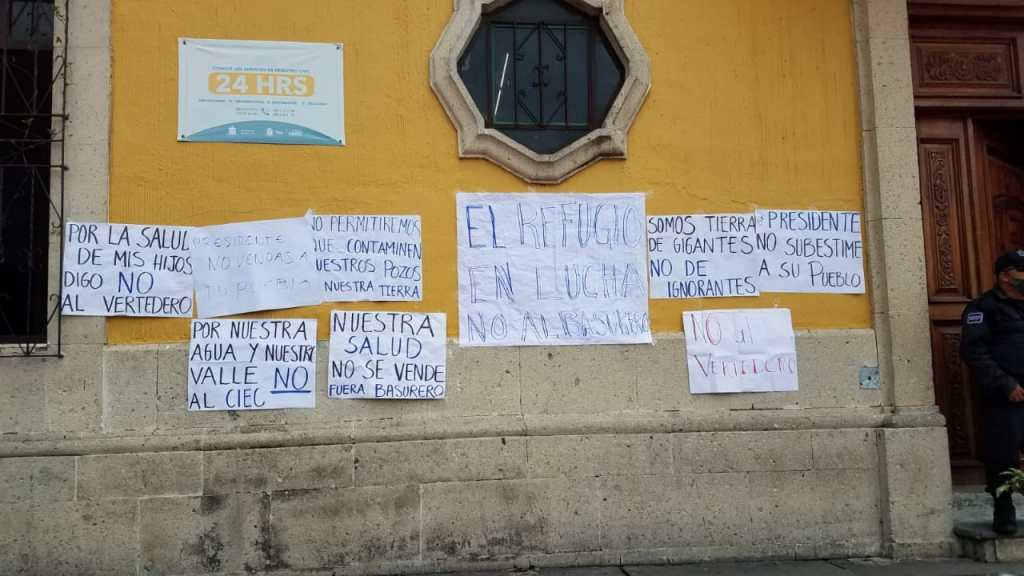 24 HRS
POR LA SALUD
DE MIS HIJOS
DIGO NO
AL VERTEDERO
PRESIDENTE
NO VENDAS A
TU PUEBLO
NO PERMITIREMOS
QUE CONTAMINEN
NUESTROS POZOS
NUESTRA TIERRA
EL REFUGIO
EN LUCHA
NO AL BASURERO
SOMOS TIERRA
DE GIGANTES
NO DE
IGNORANTES
PRESIDENTE
NO SUBESTIME
A SU PUEBLO
POR NUESTRA
AGUA Y NUESTRO
VALLE NO
AL CIEC
NUESTRA
SALUD
NO SE VENDE
FUERA BASURERO
NO al
VERTEDERO